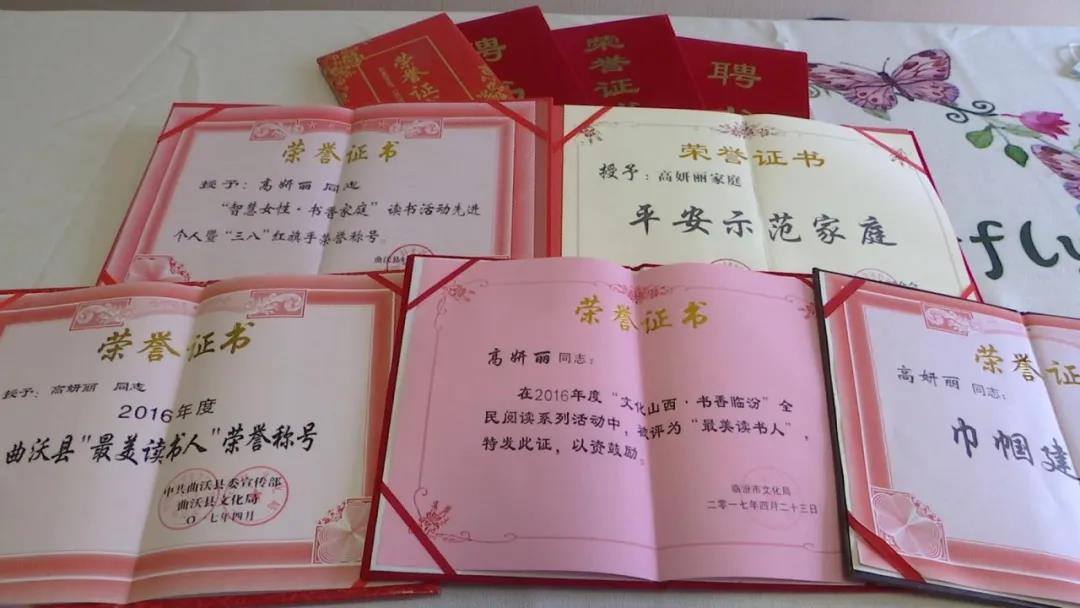 荣誉证
聘
荣誉证书
聘书
荣誉证书
授予：高妍丽 同志
“智慧女性·书香家庭”读书活动先进
个人暨“三八”红旗手荣誉称号。
荣誉证书
授予：高妍丽家庭
平安示范家庭
fly
荣誉证书
授予：高妍丽 同志
2016年度
曲沃县“最美读书人”荣誉称号
中共曲沃县委宣传部
曲沃县文化局
〇一七年四月
荣誉证书
高妍丽 同志：
在2016年度“文化山西·书香临汾”全
民阅读系列活动中，被评为“最美读书人”，
特发此证，以资鼓励。
临汾市文化局
二零一七年四月二十三日
荣誉证
高妍丽 同志：
巾帼建